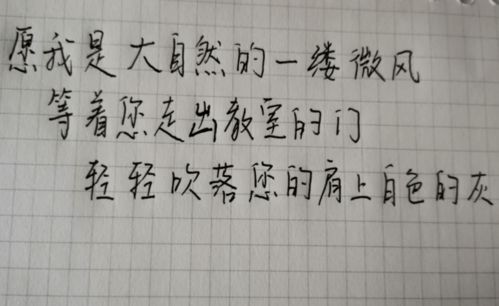 愿我是大自然的一缕微风
等着您走出教室的门
轻轻吹落您的肩上白色的灰